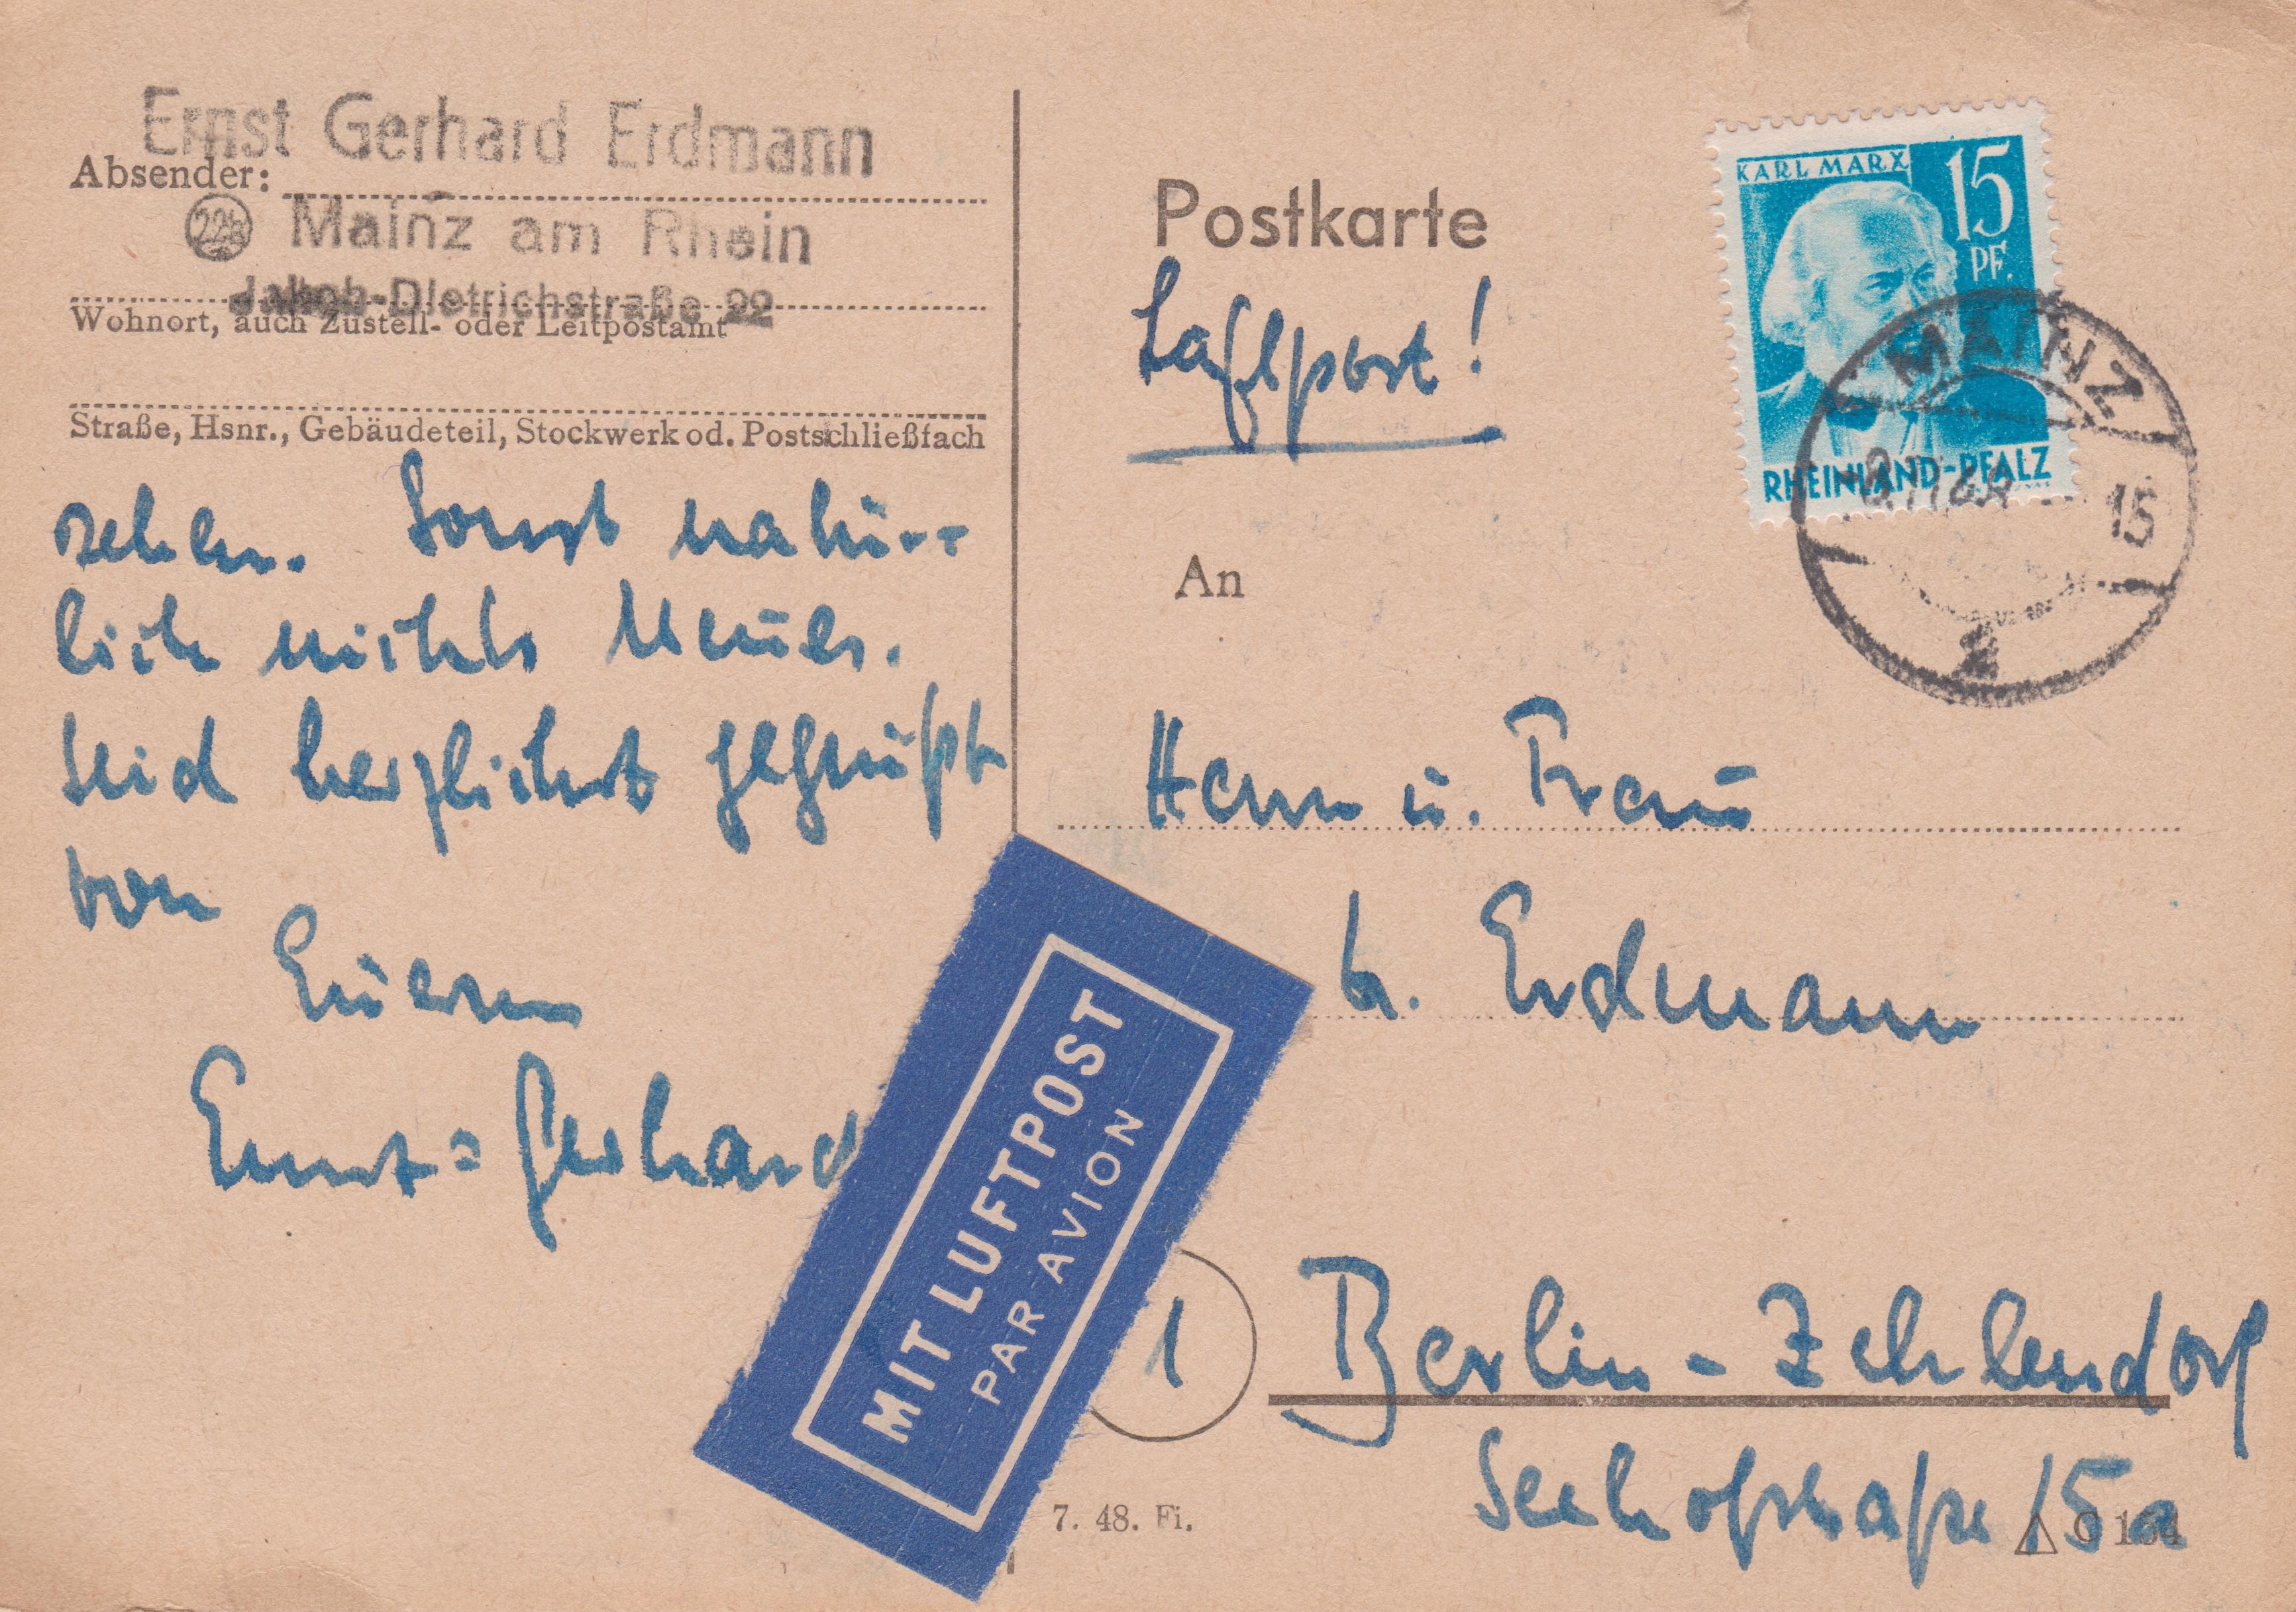 Ernst Gerhard Erdmann
Absender:
22b Mainz am Rhein
Jakob-Dietrichstraße 22
Wohnort, auch Zustell- oder Leitpostamt
Straße, Hsnr., Gebäudeteil, Stockwerk od. Postschließfach
sehen. Sonst natür-
lich nichts Neues.
Seid herzlichst gegrüßt
von
Euerm
Ernst=Gerhard
Postkarte
Luftpost!
KARL MARX 15
PF.
RHEINLAND-PFALZ
MAINZ
15
An
Herrn u. Frau
v. Erdmann
MIT LUFTPOST
PAR AVION
1 Berlin-Zehlendorf
Seehofstraße 15a
7. 48. Fi.
C 164